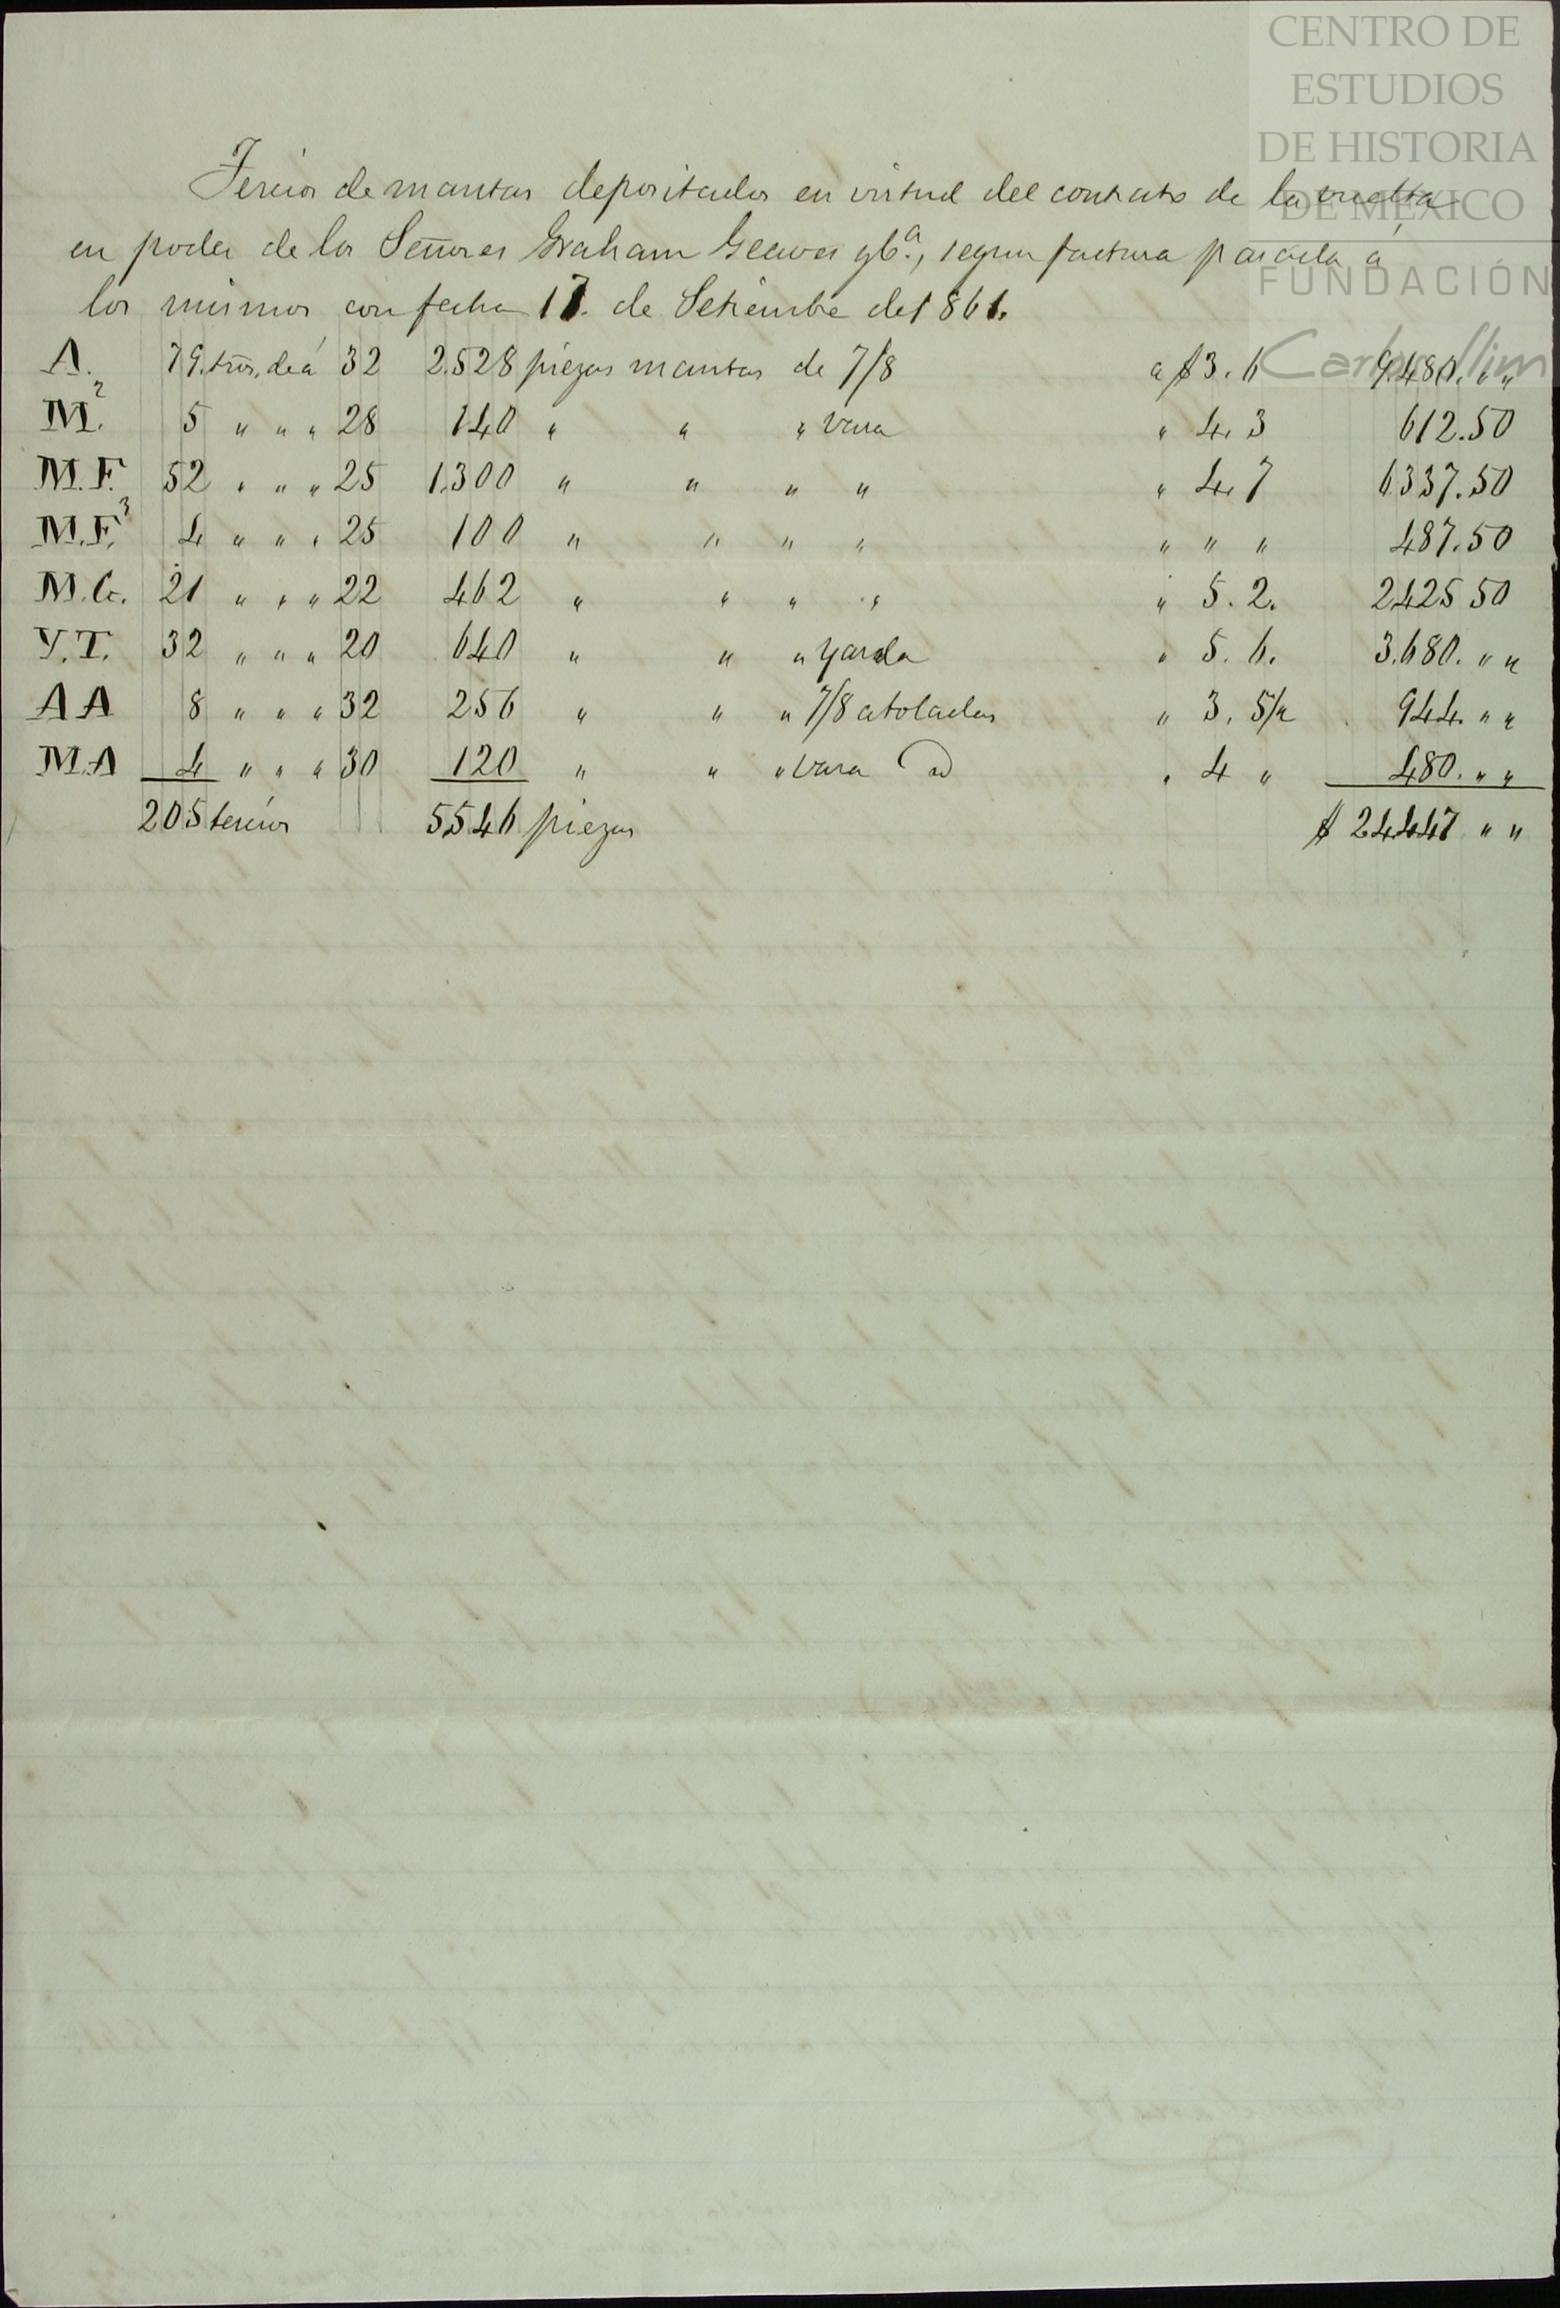 CENTRO DE
ESTUDIOS
DE HISTORIA
DE MÉXICO
FUNDACIÓN
Carlos Slim
Tercios de mantas depositados en virtud del contrato de la vuelta
en poder de los Señores Graham Geaves y Cª, segun factura pasada á
los mismos con fecha 17. de Setiembre de 1861.
A. 79. trós. de á 32 2.528 piezas mantas de 7/8 a $3.6 9.480. " "
M.² 5 " " " 28 140 " " " vara " 4. 3 612.50
M.F. 52 " " " 25 1.300 " " " " " 4. 7 6337.50
M.F.³ 4 " " " 25 100 " " " " " " " 487.50
M.C. 21 " " " 22 462 " " " " " 5. 2. 2425 50
Y.T. 32 " " " 20 640 " " " yarda " 5. 6. 3.680. " "
A A 8 " " " 32 256 " " " 7/8 atoladas " 3. 5½ 944. " "
M.A 4 " " " 30 120 " " " vara " 4 " 480. " "
205 tercios 5546 piezas $ 24447 " "